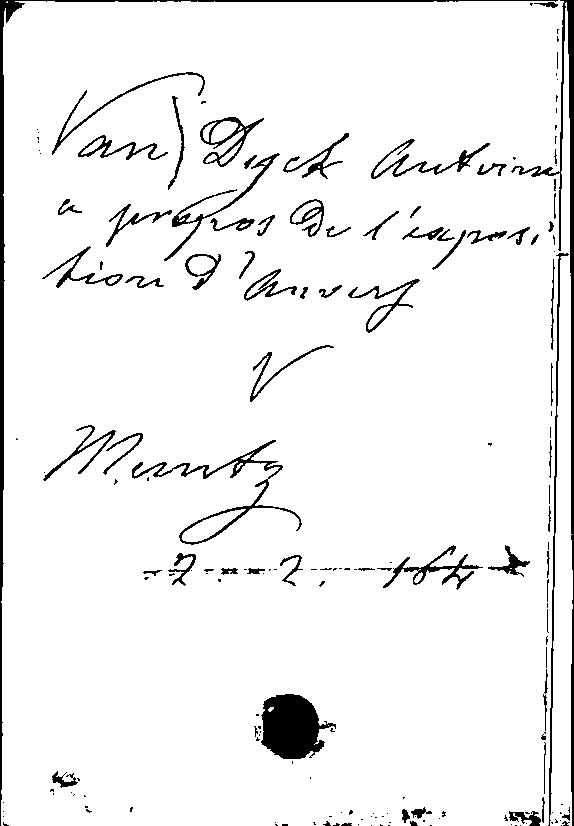 Van) Dyck Antoine
a propos De l'exposi
tion D'Anvers
V
Muntz
2 - 2. 164